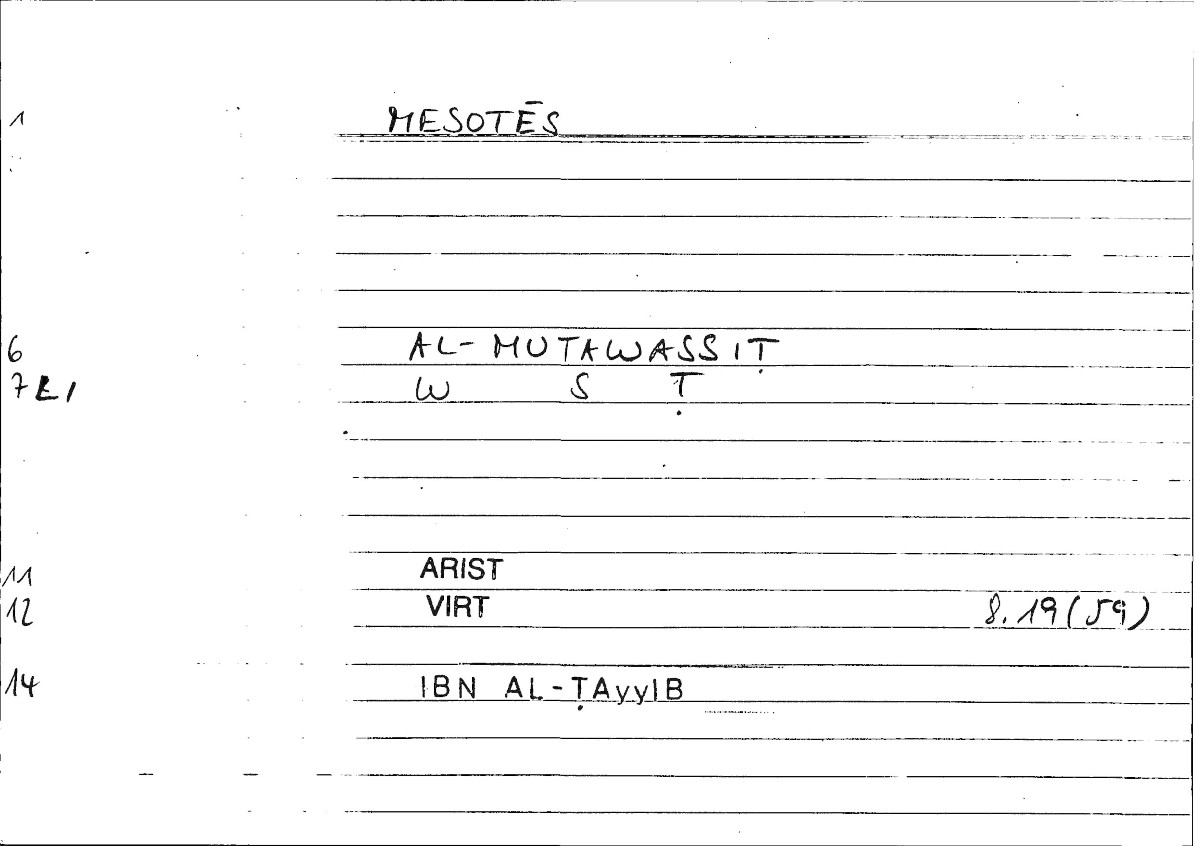 1 MESOTĒS
6 AL-MUTAWASSIṬ
7 E1 W S Ṭ
11 ARIST
12 VIRT 8.19(59)
14 IBN AL-ṬAyyIB